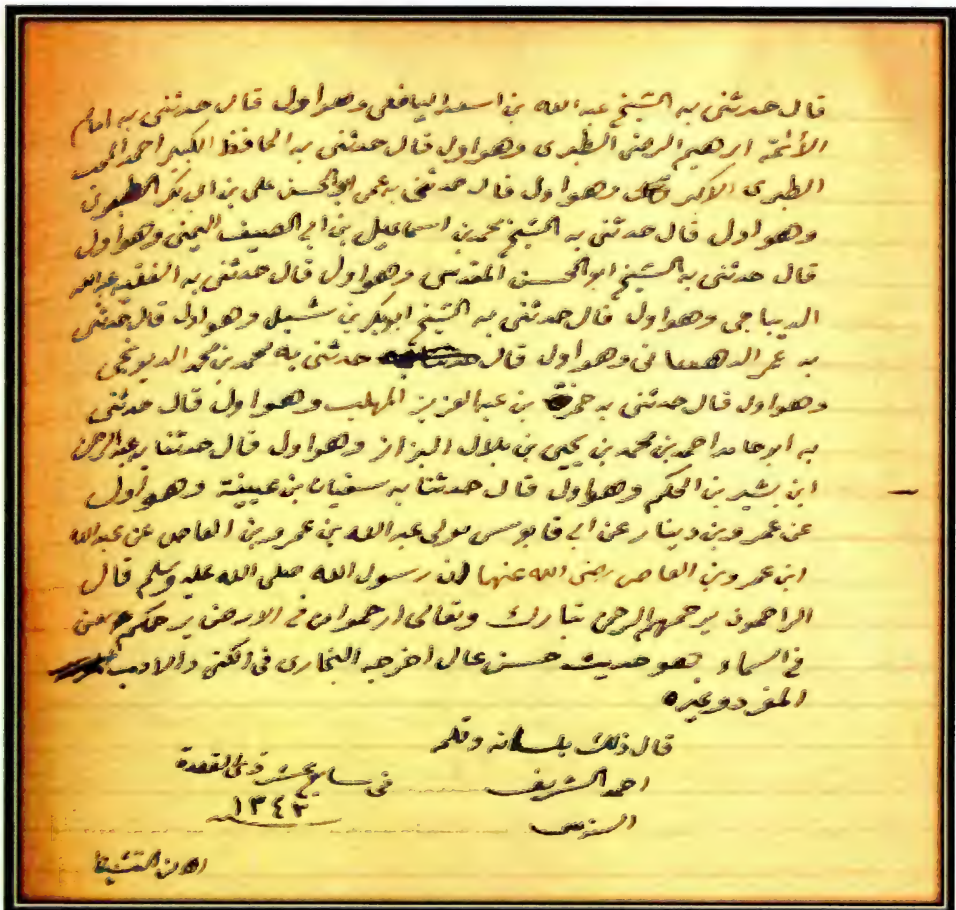 قال حدثني به الشيخ عبد الله بن اسعد اليافعي وهو اول قال حدثني به امام
الأئمة ابرهيم الرضى الطبرى وهو اول قال حدثني به الحافظ الكبير احمد المحب
الطبرى الاكبر وهو اول قال حدثني به عمى ابو الحسن على بن ابى بكر الطبرى
وهو اول قال حدثني به الشيخ محمد بن اسماعيل بن ابى الصيف اليمنى وهو اول
قال حدثني به الشيخ ابو الحسن المقدسى وهو اول قال حدثني به الفقيه عبدالله
الديباجى وهو اول قال حدثني به الشيخ ابو بكر بن شبل وهو اول قال حدثني
به عمر الدهستانى وهو اول قال حدثني به محمد بن محمد
وهو اول قال حدثني به حمزة بن عبد العزيز المهلب وهو اول قال حدثني
به ابو حامد احمد بن محمد بن يحيى بن بلال البزاز وهو اول قال حدثنا به عبد الرحمن
ابن بشير بن الحكم وهو اول قال حدثنا به سفيان ابن عيينة وهو اول
عن عمرو بن دينار عن ابى قابوس مولى عبد الله بن عمرو بن العاص عن عبد الله
ابن عمرو بن العاص رضى الله عنهما ان رسول الله صلى الله عليه وسلم قال
الراحمون يرحمهم الرحمن تبارك وتعالى ارحموا من فى الارض يرحمكم من
فى السماء وهو حديث حسن عال اخرجه البخارى فى الكنى والادب
المفرد وغيره
قال ذلك بلسانه وقلمه
احمد الشريف
السنوسى
فى سابع عشر ذى القعدة
١٣٤٣